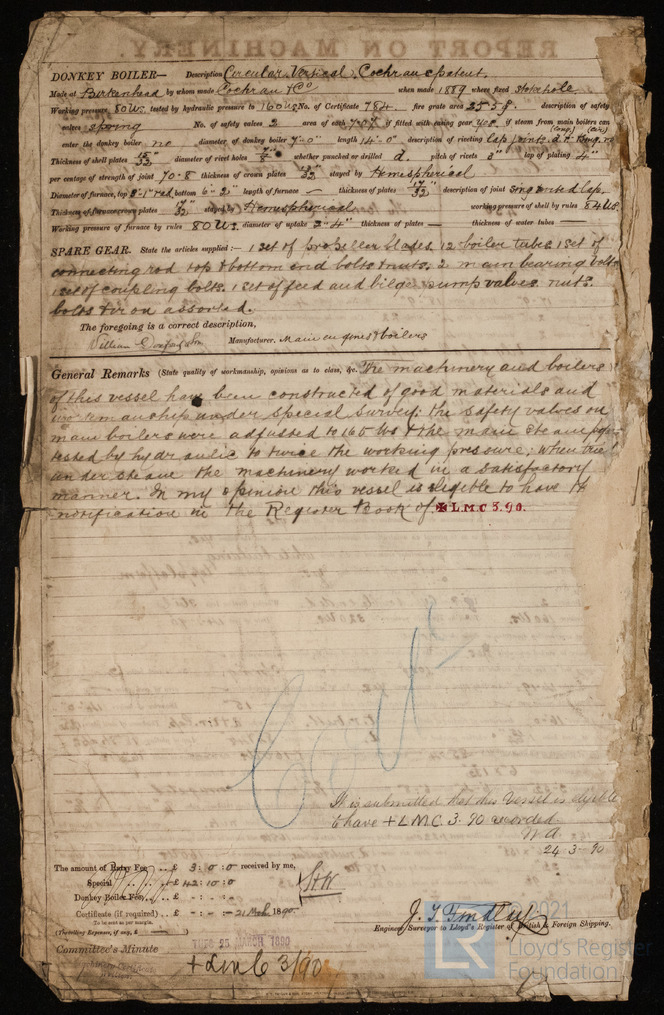 DONKEY BOILER— Description Circular Vertical, Cochran's patent.
Made at Birkenhead by whom made Cochran & Co when made 1889 where fixed stokehole
Working pressure 80 lbs. tested by hydraulic pressure to 160 lbs No. of Certificate 784. fire grate area description of safety
valves spring No. of safety valves 2 area of each 7.07 if fitted with easing gear yes if steam from main boilers can
enter the donkey boiler no diameter of donkey boiler 7'-0" length 14'-0" description of riveting lap joints
Thickness of shell plates 15/32 diameter of rivet holes whether punched or drilled d. pitch of rivets 3" lap of plating 4"
per centage of strength of joint 70.8 thickness of crown plates stayed by Hemispherical
Diameter of furnace, top bottom 6'-2" length of furnace — thickness of plates 17/32 description of joint lap.
Thickness of furnace crown plates 17/32 stayed by Hemispherical working pressure of shell by rules 84 lbs.
Working pressure of furnace by rules 80 lbs. diameter of uptake thickness of plates — thickness of water tubes —
SPARE GEAR. State the articles supplied:— 1 set of propeller blades, 12 boiler tubes, 1 set of
connecting rod top & bottom end bolts & nuts, 2 main bearing bolts
1 set of coupling bolts, 1 set of feed and bilge pump valves. nuts.
bolts & iron assorted.
The foregoing is a correct description,
William Manufacturer. Main engines & boilers
General Remarks (State quality of workmanship, opinions as to class, &c. The machinery and boilers
of this vessel have been constructed of good materials and
workmanship under special survey: the safety valves on
main boilers were adjusted to 165 lbs & the main steam pipe
tested by hydraulic to twice the working pressure; when tried
under steam the machinery worked in a satisfactory
manner. In my opinion this vessel is eligible to have the
notification in the Register Book of ✠ L.M.C 3.90.
It is submitted that this Vessel is eligible
to have + LMC 3.90 recorded
24 3-90
The amount of Entry Fee .. £ 3 : 0 : 0 received by me,
Special .. .. £ 42 : 10 : 0
Donkey Boiler Fee .. .. £ - : - : -
Certificate (if required) .. £ - : - : - 21 Mch 1890.
To be sent as per margin.
(Travelling Expenses, if any, £ )
J. T. Findlay
Engineer Surveyor to Lloyd's Register of British & Foreign Shipping.
Committee's Minute
TUES 25 MARCH 1890
+ LMC 3/90
© 2021
LR
Lloyd's Register
Foundation